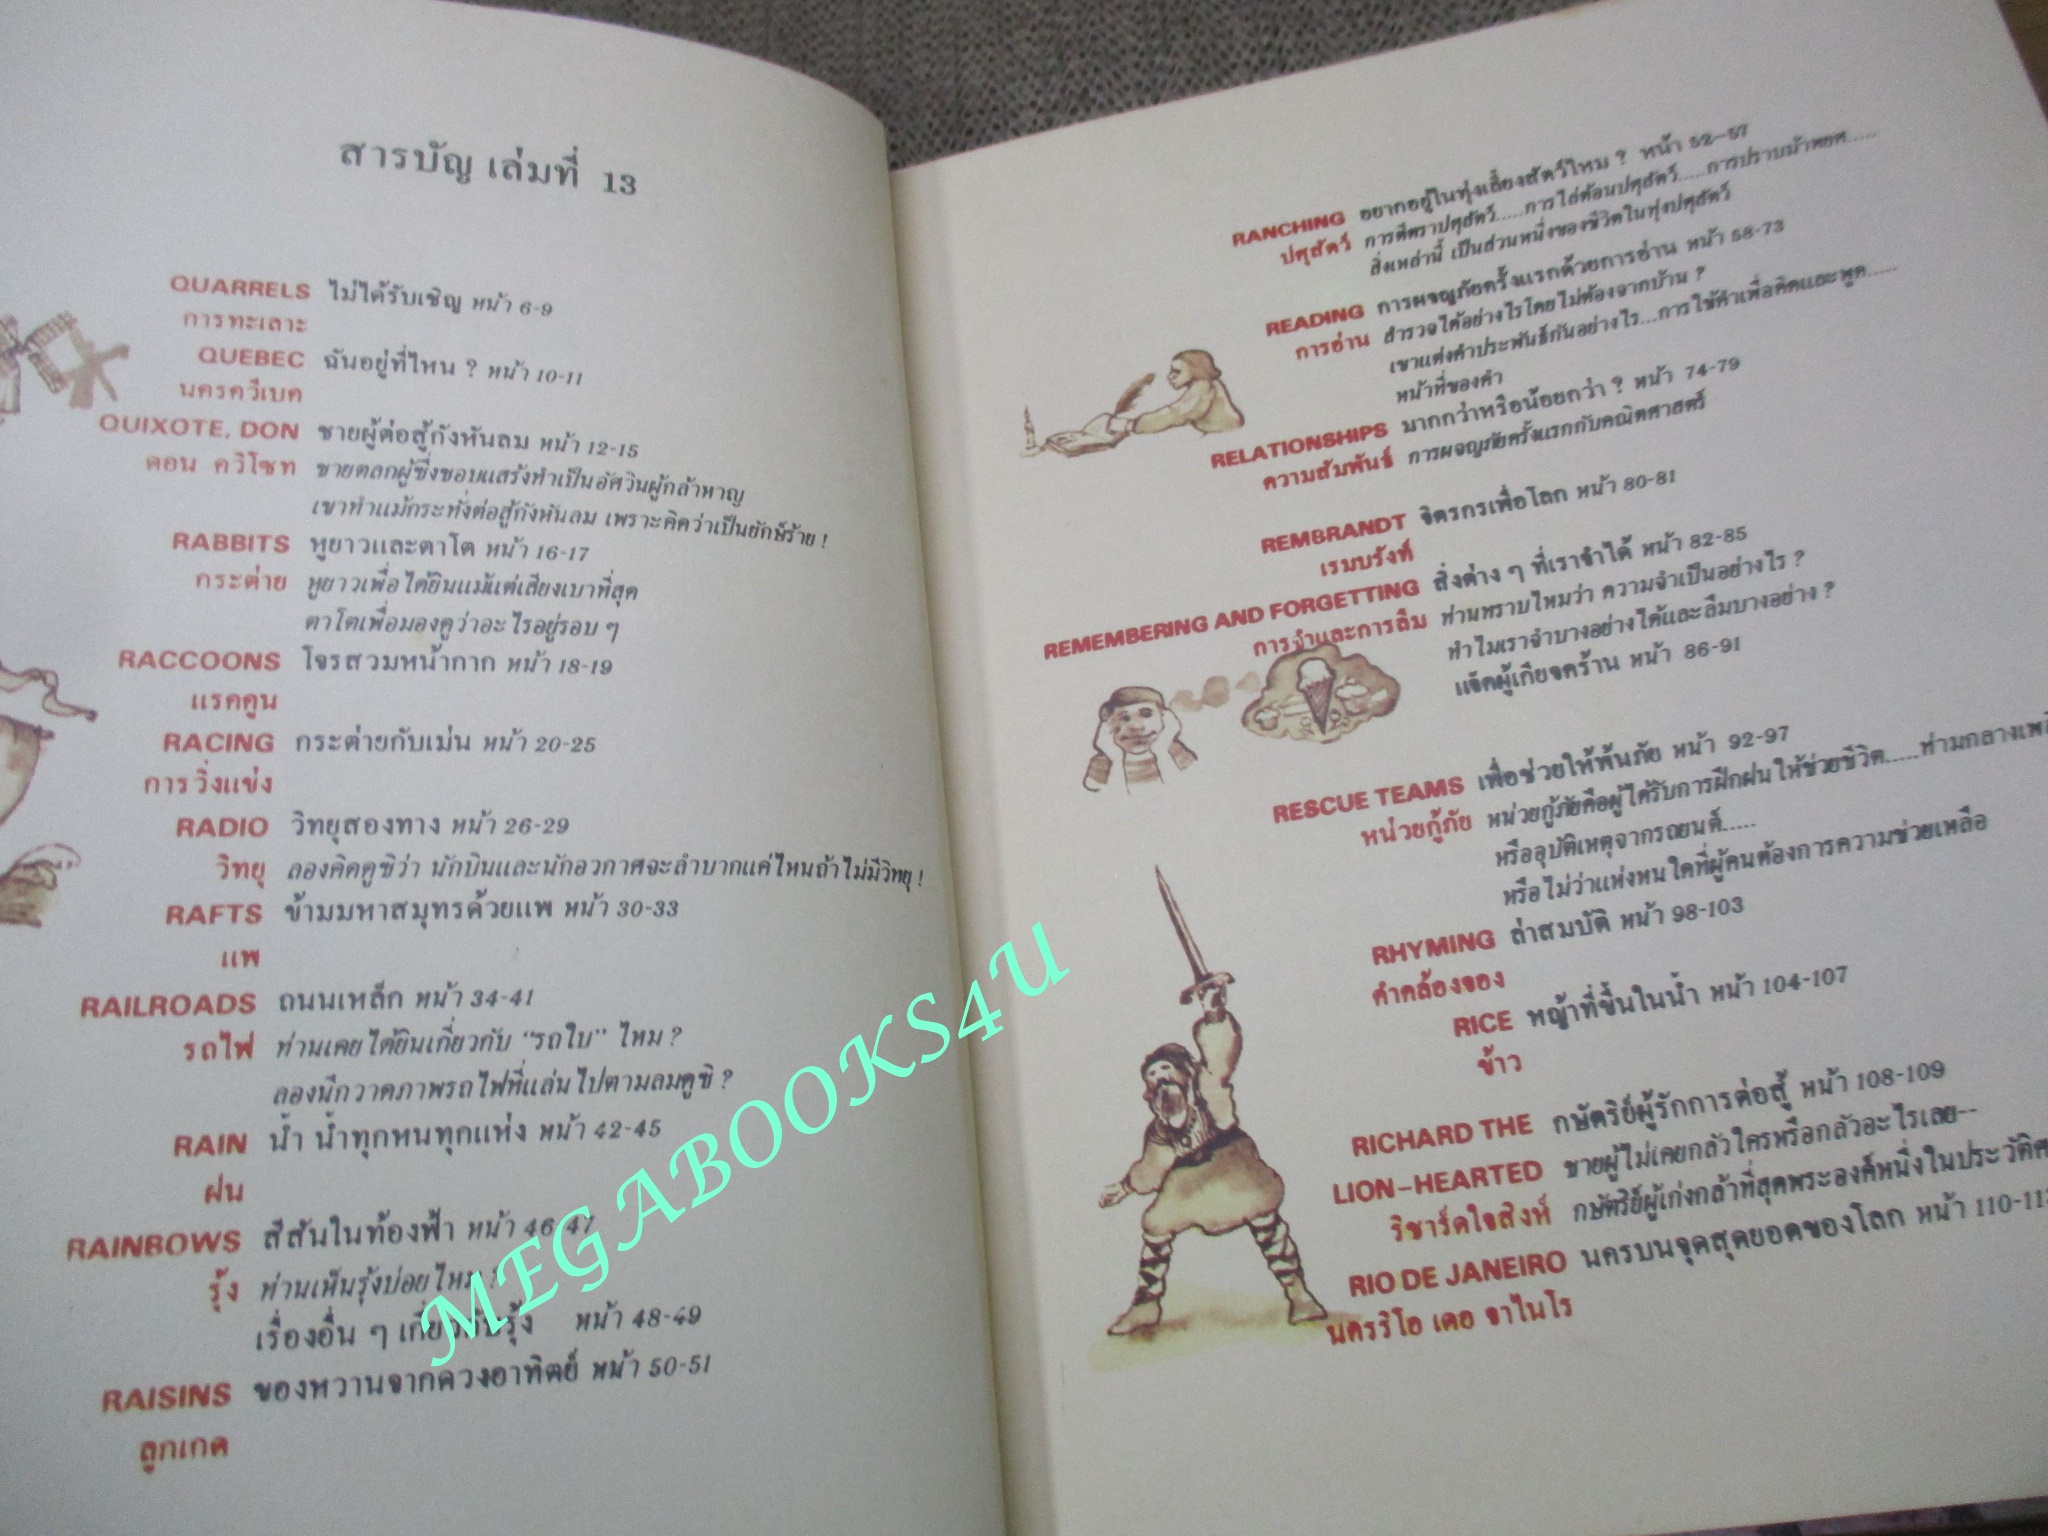 สารบัญ เล่มที่ 13
QUARRELS ไม่ได้รับเชิญ หน้า 6-9
การทะเลาะ
QUEBEC ฉันอยู่ที่ไหน ? หน้า 10-11
นครควีเบค
QUIXOTE, DON ชายผู้ต่อสู้กังหันลม หน้า 12-15
ดอน ควิโซท ชายตลกผู้ซึ่งชอบแสร้งทำเป็นอัศวินผู้กล้าหาญ
เขาทำแม้กระทั่งต่อสู้กังหันลม เพราะคิดว่าเป็นยักษ์ร้าย !
RABBITS หูยาวและตาโต หน้า 16-17
กระต่าย หูยาวเพื่อได้ยินแม้แต่เสียงเบาที่สุด
ตาโตเพื่อมองดูว่าอะไรอยู่รอบ ๆ
RACCOONS โจรสวมหน้ากาก หน้า 18-19
แรคคูน
RACING กระต่ายกับเม่น หน้า 20-25
การวิ่งแข่ง
RADIO วิทยุสองทาง หน้า 26-29
วิทยุ ลองคิดดูซิว่า นักบินและนักอวกาศจะลำบากแค่ไหนถ้าไม่มีวิทยุ !
RAFTS ข้ามมหาสมุทรด้วยแพ หน้า 30-33
แพ
RAILROADS ถนนเหล็ก หน้า 34-41
รถไฟ ท่านเคยได้ยินเกี่ยวกับ "รถใบ" ไหม ?
ลองนึกวาดภาพรถไฟที่แล่นไปตามลมดูซิ ?
RAIN น้ำ น้ำทุกหนทุกแห่ง หน้า 42-45
ฝน
RAINBOWS สีสันในท้องฟ้า หน้า 46-47
รุ้ง ท่านเห็นรุ้งบ่อยไหม ?
เรื่องอื่น ๆ เกี่ยวกับรุ้ง หน้า 48-49
RAISINS ของหวานจากดวงอาทิตย์ หน้า 50-51
ลูกเกด
RANCHING อยากอยู่ในทุ่งเลี้ยงสัตว์ไหม ? หน้า 52-57
ปศุสัตว์ การตีตราปศุสัตว์.....การไล่ต้อนปศุสัตว์.....การปราบม้าพยศ.....
สิ่งเหล่านี้ เป็นส่วนหนึ่งของชีวิตในทุ่งปศุสัตว์
READING การผจญภัยครั้งแรกด้วยการอ่าน หน้า 58-73
การอ่าน สำรวจได้อย่างไรโดยไม่ต้องจากบ้าน ?
เขาแต่งคำประพันธ์กันอย่างไร...การใช้คำเพื่อคิดและพูด.....
หน้าที่ของคำ
RELATIONSHIPS มากกว่าหรือน้อยกว่า ? หน้า 74-79
ความสัมพันธ์ การผจญภัยครั้งแรกกับคณิตศาสตร์
REMBRANDT จิตรกรเพื่อโลก หน้า 80-81
เรมบรังท์
REMEMBERING AND FORGETTING สิ่งต่าง ๆ ที่เราจำได้ หน้า 82-85
การจำและการลืม ท่านทราบไหมว่า ความจำเป็นอย่างไร ?
ทำไมเราจำบางอย่างได้และลืมบางอย่าง ?
แจ๊คผู้เกียจคร้าน หน้า 86-91
RESCUE TEAMS เพื่อช่วยให้พ้นภัย หน้า 92-97
หน่วยกู้ภัย หน่วยกู้ภัยคือผู้ได้รับการฝึกฝนให้ช่วยชีวิต.....ท่ามกลางเพลิ
หรืออุบัติเหตุจากรถยนต์.....
หรือไม่ว่าแห่งหนใดที่ผู้คนต้องการความช่วยเหลือ
RHYMING ล่าสมบัติ หน้า 98-103
คำคล้องจอง
RICE หญ้าที่ขึ้นในน้ำ หน้า 104-107
ข้าว
RICHARD THE กษัตริย์ผู้รักการต่อสู้ หน้า 108-109
LION-HEARTED ชายผู้ไม่เคยกลัวใครหรือกลัวอะไรเลย--
ริชาร์ดใจสิงห์ กษัตริย์ผู้เก่งกล้าที่สุดพระองค์หนึ่งในประวัติ
RIO DE JANEIRO นครบนจุดสุดยอดของโลก หน้า 110-11
นครริโอ เดอ จาไนโร
MEGABOOKS4U